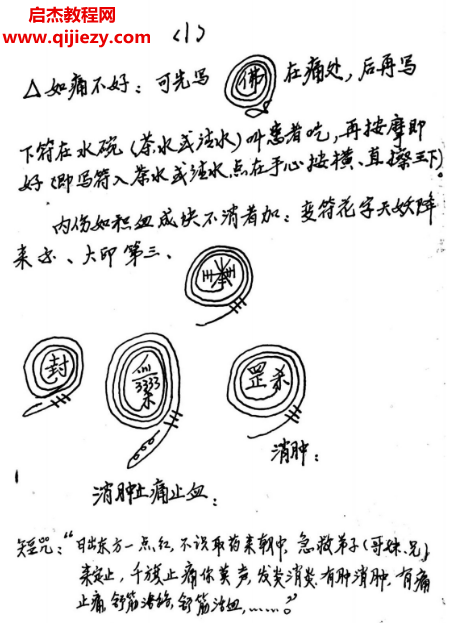 启杰教程网
www.qijiezy.com
<1>
△如痛不好：可先写 佛 在痛处，后再写
下符在水碗(茶水或法水)叫患者吃，再按摩即
好(即写符入茶水或法水点在手心按横、直擦三下)。
内伤如积血成块不消者加：变符花字天妖降
来亦、大印第三、
封 罡杀
消肿：
消肿止痛止血：
短咒："日出东方一点红，不说取药来朝中，急救弟子(哥妹、兄)
来定止，千族止痛你莫声，发炎消炎，有肿消肿，有痛
止痛，舒筋活络，舒筋活血，……。"